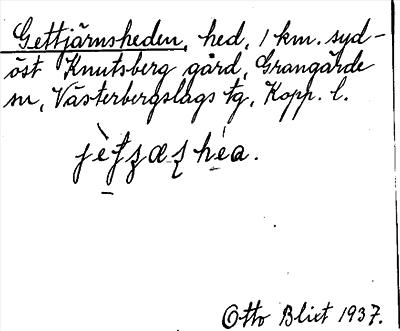 Gettjärnsheden, hed, 1 km. syd-
öst Knutsberg gård, Grangärde
sn, Västerbergslags tg, Kopp. l.
Otto Blixt 1937.